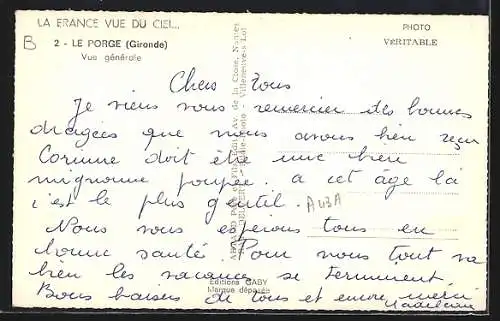 LA FRANCE VUE DU CIEL...
PHOTO
VÉRITABLE
B
2 - LE PORGE (Gironde)
Vue générale
Chers Tous
Je viens vous remercier des bonnes
dragées que nous avons bien reçu
Corinne doit être une bien
mignonne poupée. a cet âge là
c'est le plus gentil.
AU3A
Nous vous espérons tous en
bonne santé. Pour nous tout va
bien les vacances se terminent.
Bons baisers de tous et encore merci
Madeleine
Editions GABY
Marque déposée
de la Close, Nantes
Villeneuve-s-Lot